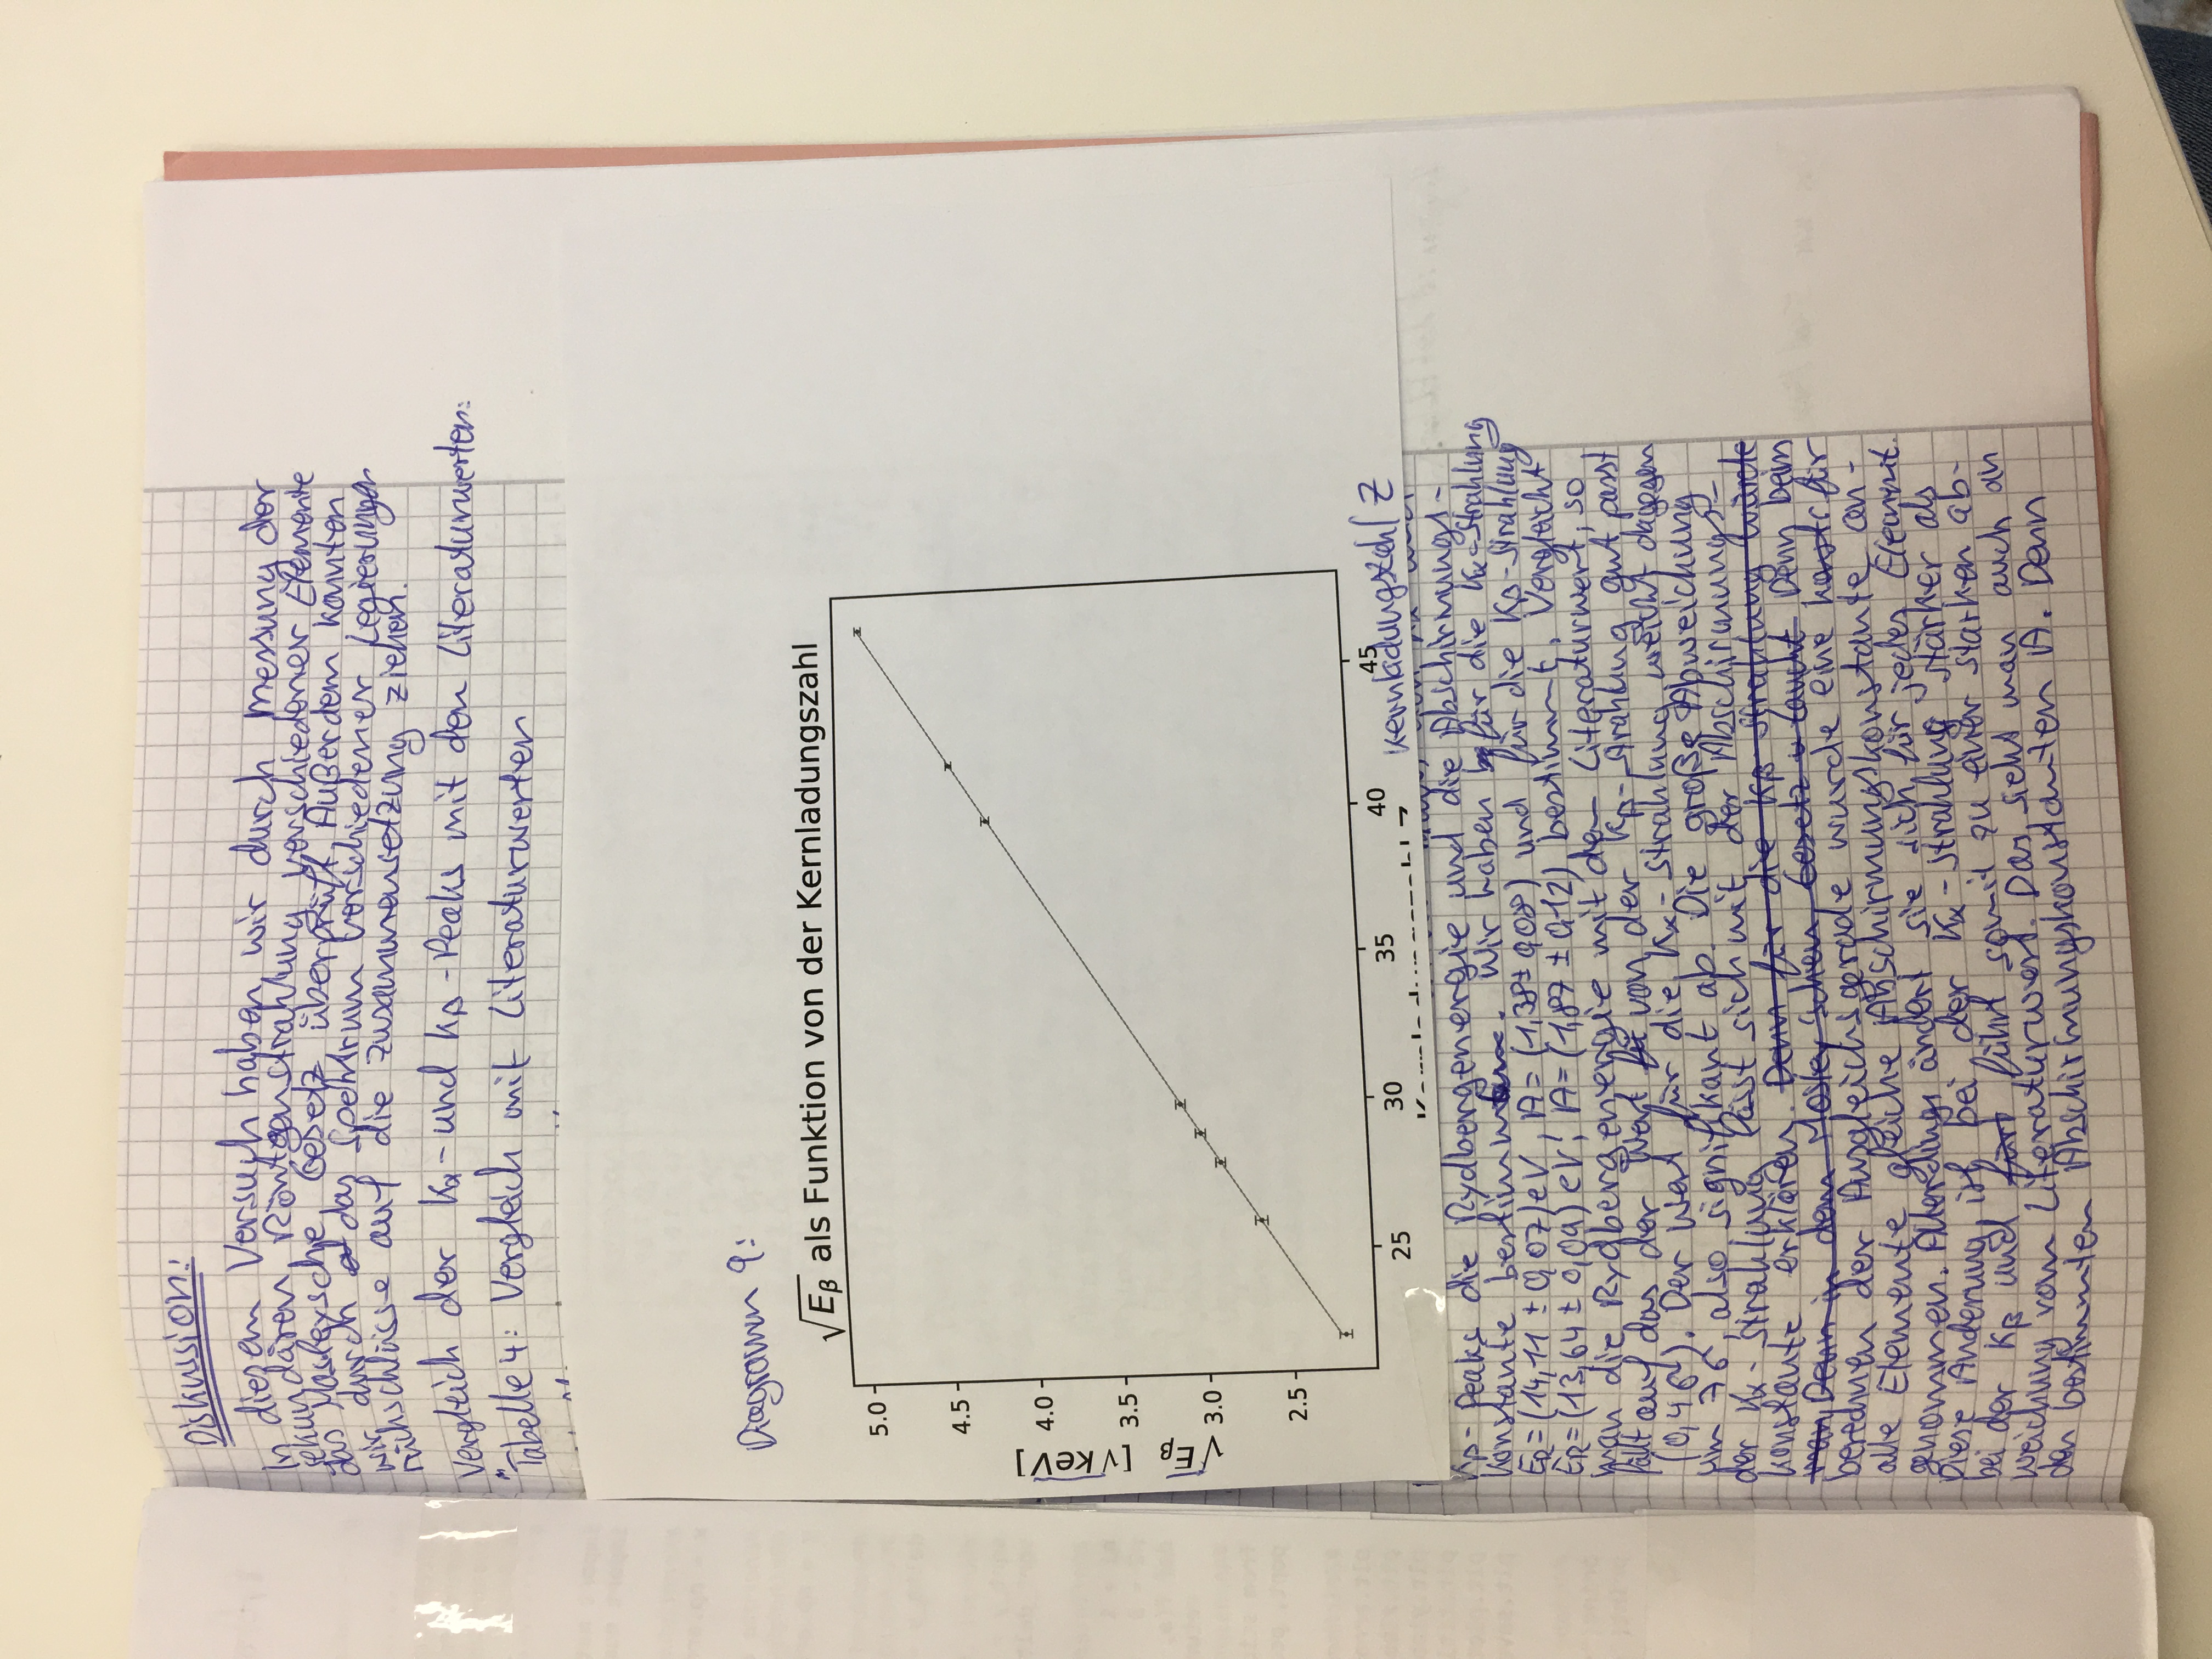 Diskussion:
In diesem Versuch haben wir durch Messung der
sekundären Röntgenstrahlung verschiedener Elemente
das Mosleysche Gesetz überprüft. Außerdem konnten
wir durch das Spektrum verschiedener Legierungen
rückschlüsse auf die Zusammensetzung ziehen.
Vergleich der Kα- und Kβ-Peaks mit den Literaturwerten:
Tabelle 4: Vergleich mit Literaturwerten
Diagramm 9:
√Eβ als Funktion von der Kernladungszahl
5.0
4.5
4.0
3.5
3.0
2.5
√Eβ [√keV]
25 30 35 40 45
Kernladungszahl Z
Kernladungszahl Z
Kβ-Peaks die Rydbergenergie und die Abschirmungs-
konstante bestimmt. Wir haben für die Kα-Strahlung
ER=(14,11 ± 0,07)eV, A=(1,38±0,08) und für die Kβ-Strahlung
ER=(13,64 ± 0,09) eV, A=(1,87 ± 0,12) bestimmt. Vergleicht
man die Rydbergenergie mit dem Literaturwert, so
fällt auf das der Wert von der Kβ-Strahlung gut passt
(0,4σ). Der Wert für die Kα-Strahlung weicht dagegen
um 7σ, also signifikant ab. Die große Abweichung
der Kα-Strahlung lässt sich mit der Abschirmungs-
konstante erklären. Denn für die Kβ Strahlung würde
man Denn in dem Mosley'schen Gesetz taucht Denn beim
berechnen der Ausgleichsgerade wurde eine für
alle Elemente gleiche Abschirmungskonstante an-
genommen. Allerdings ändert sie sich für jedes Element.
Diese Änderung ist bei der Kα-Strahlung stärker als
bei der Kβ und führt somit zu einer starken ab-
weichung vom Literaturwert. Das sieht man auch an
den bestimmten Abschirmungskonstanten A. Denn